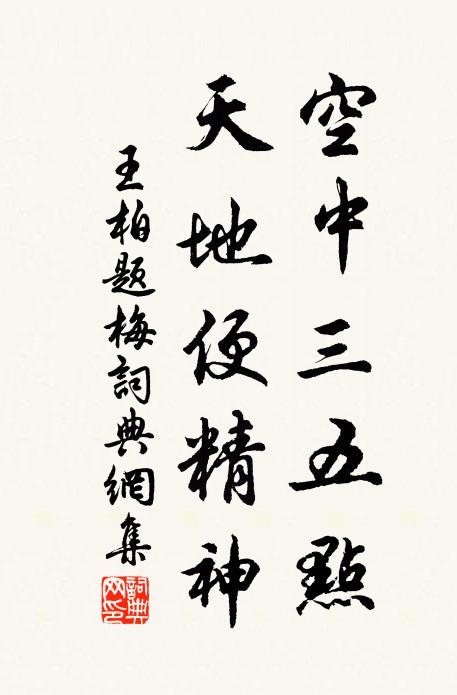 空中三五點
天地便精神
王柏題梅詞典網集
詞典网印